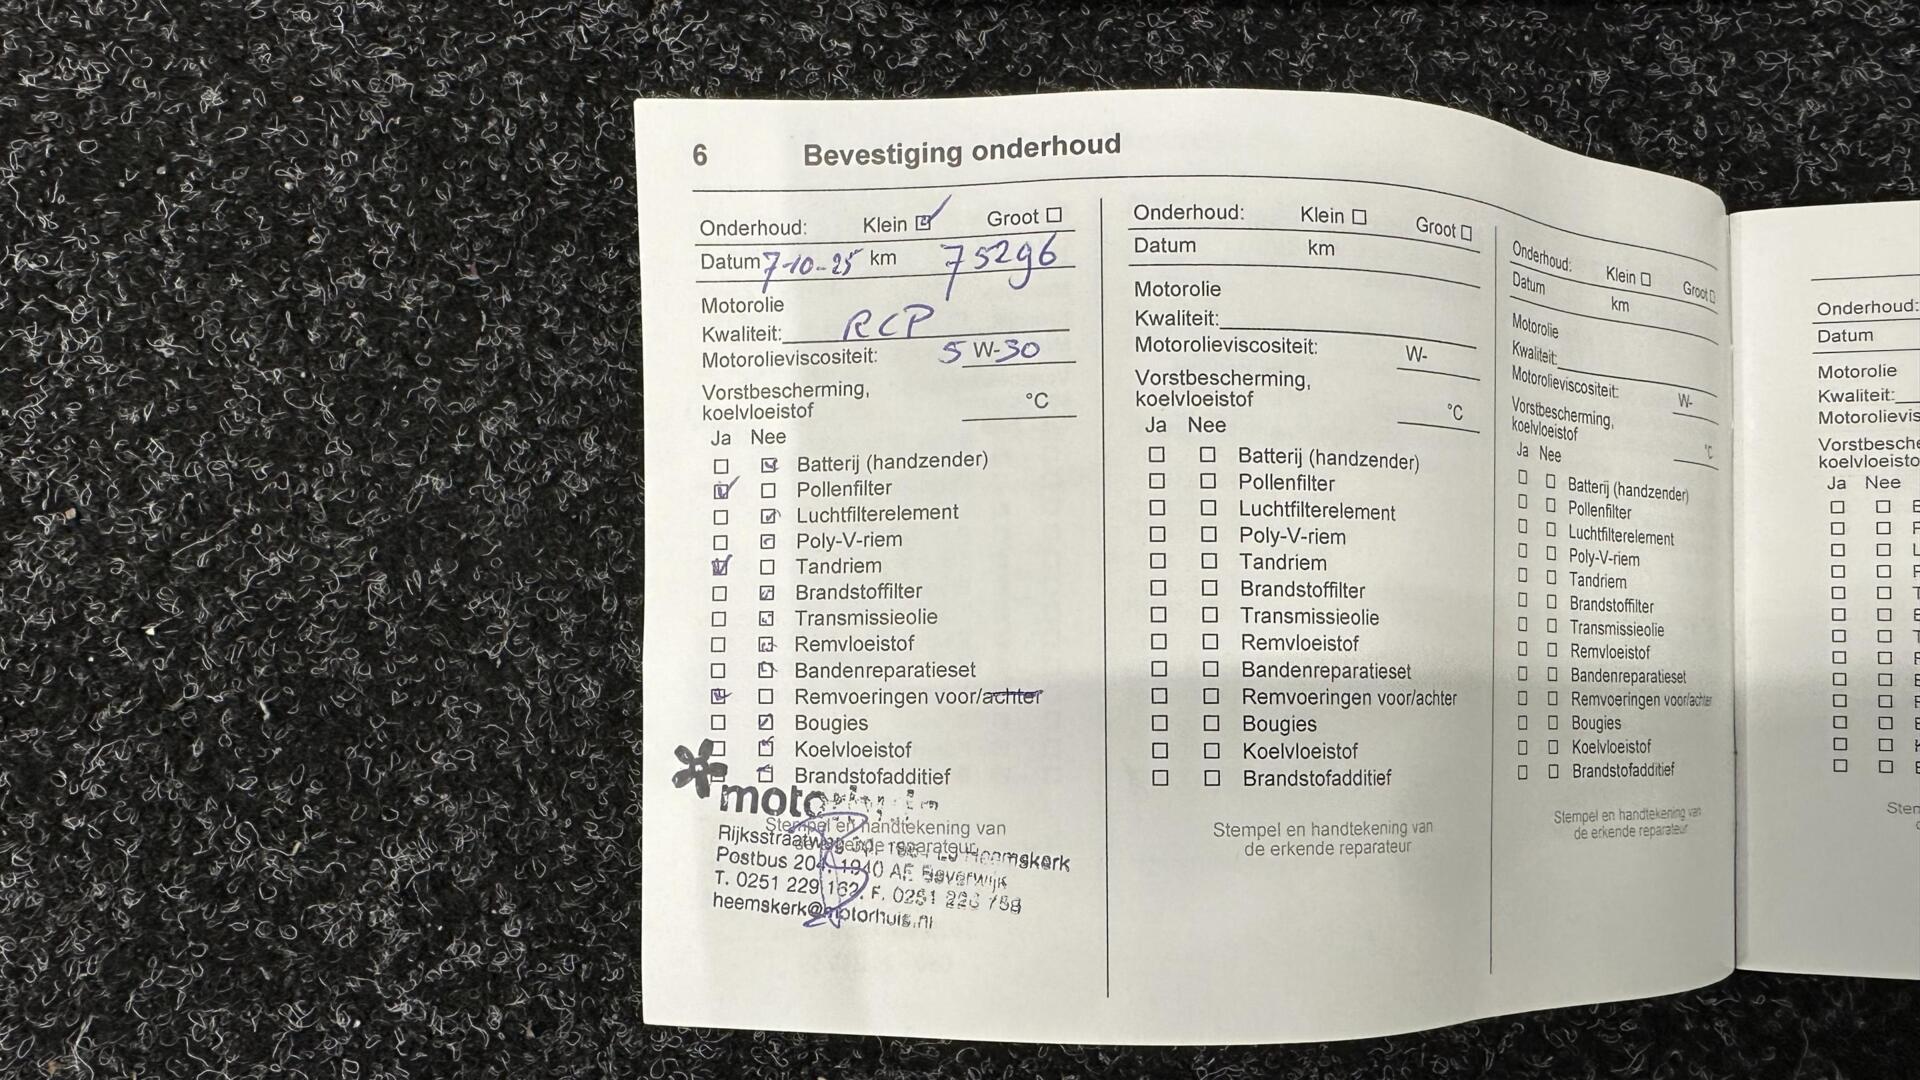 6 Bevestiging onderhoud
Onderhoud: Klein Groot
Datum 7-10-25 km 75296
Motorolie
Kwaliteit: RCP
Motorolieviscositeit: 5 W-30
Vorstbescherming,
koelvloeistof °C
Ja Nee
Batterij (handzender)
Pollenfilter
Luchtfilterelement
Poly-V-riem
Tandriem
Brandstoffilter
Transmissieolie
Remvloeistof
Bandenreparatieset
Remvoeringen voor/achter
Bougies
Koelvloeistof
Brandstofadditief
Stempel en handtekening van
de erkende reparateur
Heemskerk
Postbus 204, 1940 AE Beverwijk
T. 0251 229 162. F. 0251 226 758
heemskerk@motorhuis.nl
Onderhoud: Klein Groot
Datum km
Motorolie
Kwaliteit:
Motorolieviscositeit: W-
Vorstbescherming,
koelvloeistof °C
Ja Nee
Batterij (handzender)
Pollenfilter
Luchtfilterelement
Poly-V-riem
Tandriem
Brandstoffilter
Transmissieolie
Remvloeistof
Bandenreparatieset
Remvoeringen voor/achter
Bougies
Koelvloeistof
Brandstofadditief
Stempel en handtekening van
de erkende reparateur
Onderhoud: Klein Groot
Datum km
Motorolie
Kwaliteit:
Motorolieviscositeit: W-
Vorstbescherming,
koelvloeistof °C
Ja Nee
Batterij (handzender)
Pollenfilter
Luchtfilterelement
Poly-V-riem
Tandriem
Brandstoffilter
Transmissieolie
Remvloeistof
Bandenreparatieset
Remvoeringen voor/achter
Bougies
Koelvloeistof
Brandstofadditief
Stempel en handtekening van
de erkende reparateur
Onderhoud:
Datum
Motorolie
Kwaliteit:
Motorolievis
Vorstbesche
koelvloeisto
Ja Nee
Sten